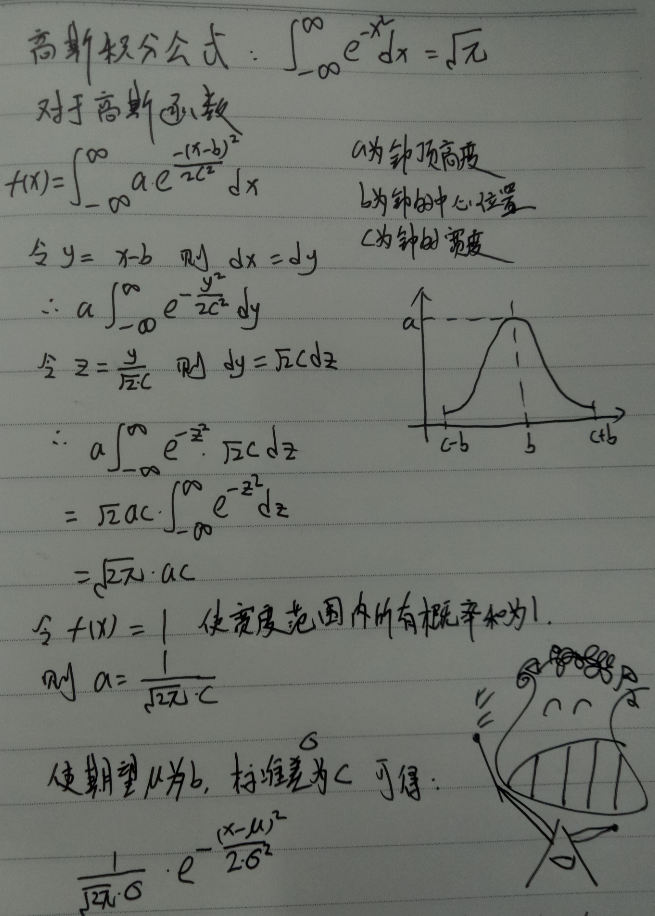 高斯积分公式: ∫_{-∞}^{∞} e^{-x²}dx = √π
对于高斯函数
f(x) = ∫_{-∞}^{∞} a·e^{\frac{-(x-b)²}{2c²}} dx
a为钟顶高度
b为钟的中心位置
c为钟的宽度
令 y = x-b 则 dx = dy
∴ a ∫_{-∞}^{∞} e^{-\frac{y²}{2c²}} dy
令 z = \frac{y}{√2·c} 则 dy = √2cdz
∴ a ∫_{-∞}^{∞} e^{-z²}·√2c dz
= √2ac·∫_{-∞}^{∞} e^{-z²}dz
= √2π·ac
a
c-b b c+b
令 f(x) = 1 使宽度范围内所有概率和为1.
则 a = \frac{1}{√2π·c}
使期望μ为b, 标准差σ为c 可得:
\frac{1}{√2π·σ}·e^{-\frac{(x-μ)²}{2·σ²}}